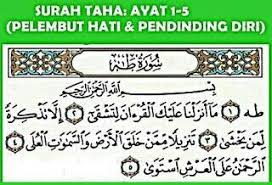 SURAH TAHA: AYAT 1-5
(PELEMBUT HATI & PENDINDING DIRI)
سُورَةُ طٰهٰ
بِسْمِ اللَّهِ الرَّحْمٰنِ الرَّحِيمِ
طه ١ مَا أَنزَلْنَا عَلَيْكَ الْقُرْءَانَ لِتَشْقَىٰ ٢ إِلَّا تَذْكِرَةً
لِّمَن يَخْشَىٰ ٣ تَنزِيلًا مِّمَّنْ خَلَقَ الْأَرْضَ وَالسَّمَٰوَٰتِ الْعُلَى ٤
الرَّحْمَٰنُ عَلَى الْعَرْشِ اسْتَوَىٰ ٥